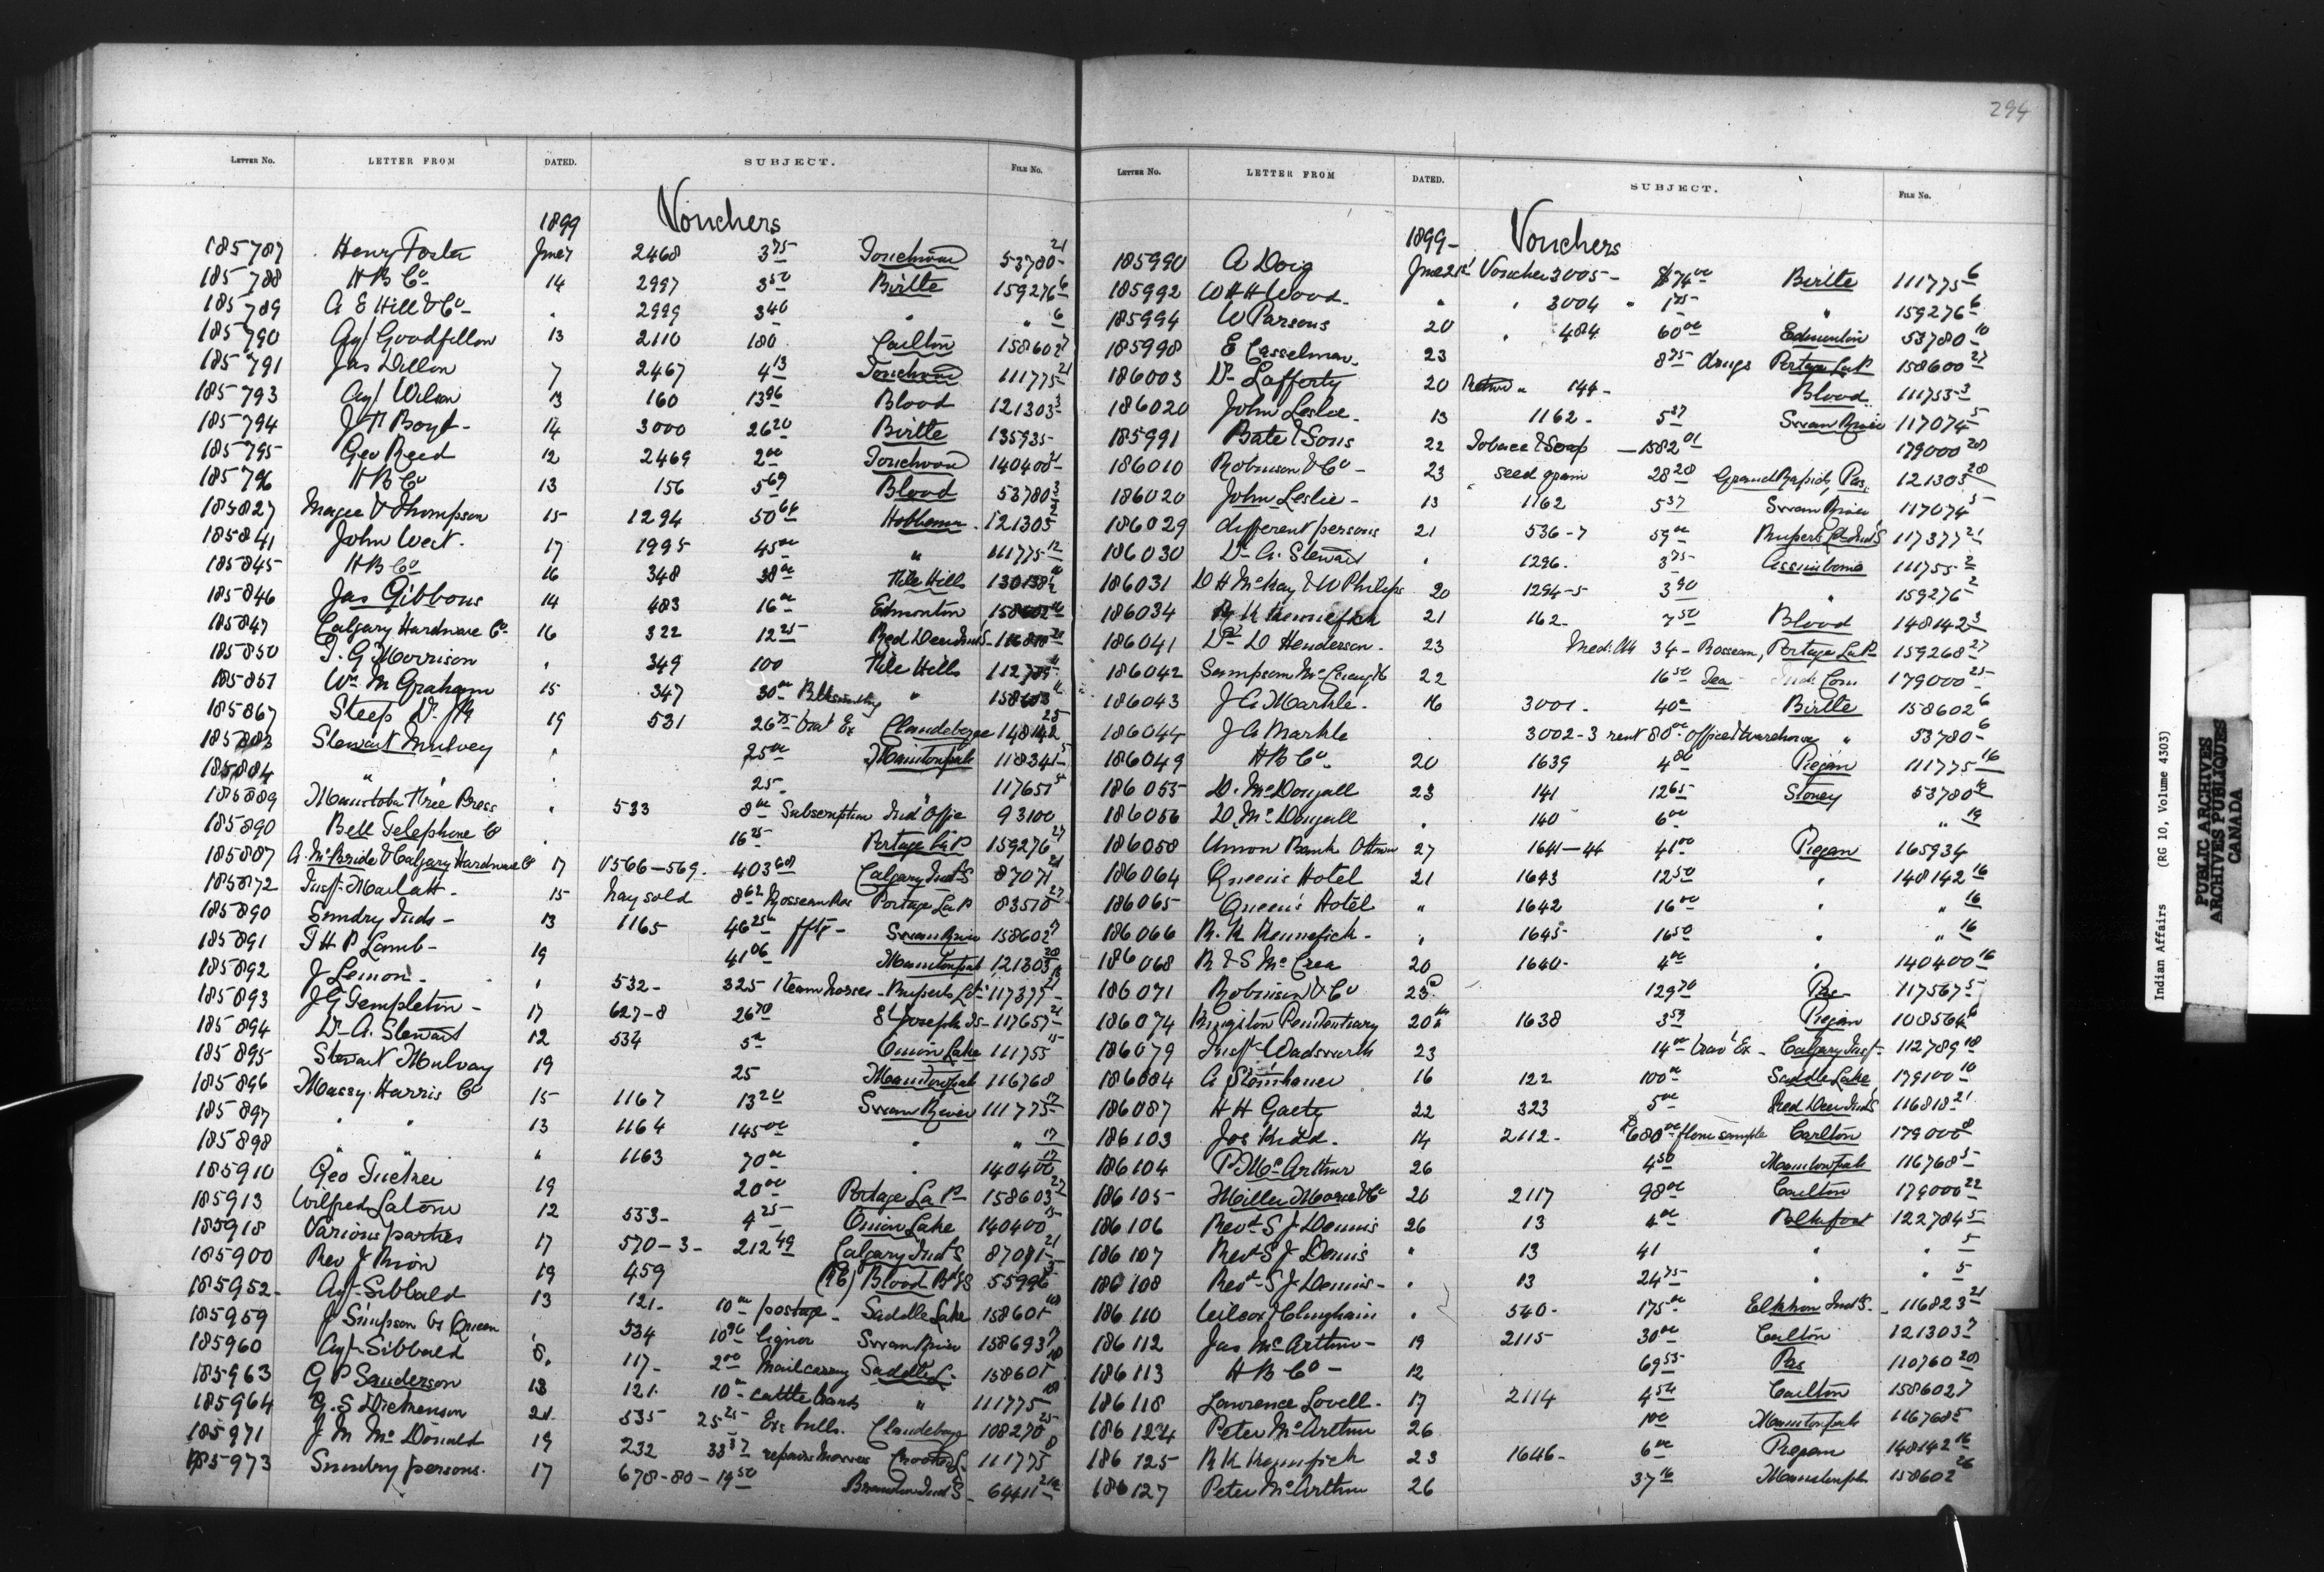 294
LETTER NO. LETTER FROM DATED. SUBJECT. FILE NO.
1899 Vouchers
185787 Henry Foster June 7 2468 3 75 Touchwood 53780 21
185788 H B Co 14 2997 3 50 Birtle 159276 6
185789 A E Hill & Co " 2999 3 40 " " 6
185790 Agt Goodfellow 13 2110 180 Carlton 158602 7
185791 Jas Dillon 7 2467 4 13 Touchwood 111775 21
185793 Agt Wilson 13 160 13 96 Blood 121303 3
185794 J T Boyd 14 3000 26 20 Birtle 135935
185795 Geo Reed 12 2469 2 00 Touchwood 140400 21
185796 H B Co 13 156 5 69 Blood 53780 3
185827 Magee & Thompson 15 1294 50 66 Hobbema 121303 2
185841 John West 17 1995 45 00 " 111775 12
185845 H B Co 16 348 38 00 File Hills
185846 Jas Gibbons 14 483 16 00 Edmonton 158602
185847 Calgary Hardware Co 16 322 12 25 Red Deer Ind S. 116818 21
185850 T. G Morrison " 349 100 File Hills 112789
185851 Wm M Graham 15 347 30 00 Blksmithing " 158603
185867 Steep Dr 19 531 26 75 Trav Ex Clandeboye 148142 25
Stewart Mulvey " 25 00 Manitowpah 118341 5
185884 " " 25 117657 5
185889 Manitoba Free Press " 533 8 00 Subscription Ind Office 93100
185890 Bell Telephone Co " 16 25 Portage La P 159276 27
185887 A. McBride & Calgary Hardware Co 17 V566-569 403 68 Calgary Ind S 87071 21
185872 Insp Marlatt 15 hay sold 8 62 Rosseau Res Portage La P 83510 27
185890 Sundry Inds 13 1165 46 25 Swan River 158602 7
185891 T H P Lamb 19 41 06 Manitowpah 121303
185892 J Lemon " 532 325 1 team horses Ruperts Ld 117377 21
185893 J G Templeton 17 627-8 26 70 St Josephs Is 117657 21
185894 Dr A. Stewart 12 534 5 00 Onion Lake 111755 15
185895 Stewart Mulvay 19 25 Manitowpah 116768
185896 Massy Harris Co 15 1167 13 20 Swan River 111775 17
185897 " " 13 1164 145 00 " " 17
185898 " " 1163 70 00 " 140400 17
185910 Geo Tucker 19 20 00 Portage La P 158603 27
185913 Wilfred Latour 12 533 4 25 Onion Lake 140400 15
185918 Various parties 17 570-3 212 49 Calgary Ind S 87081 21
185900 Rev J Rion 19 459 (RC) Blood Bd S 55996 3
185952 Agt Sibbald 13 121 10 00 postage Saddle Lake 158601 10
185959 J Simpson vs Queen " 534 10 90 liquor Swan River 158693 7
185960 Agt Sibbald 8 117 2 00 Mail carry Saddle L 158601 10
185963 G P Sanderson 13 121 10 00 cattle " 111775 10
185964 G. S Dickenson 21 535 25 25 Ex bulls Clandeboye 108270 25
185971 J M McDonald 19 232 33 37 repairs mower Crooked L 111775 8
185973 Sundry persons 17 678-80 19 50 Brandon Ind S 64411
LETTER NO. LETTER FROM DATED. SUBJECT. FILE NO.
1899 Vouchers
185990 A Doig June 21st Voucher 3005 $74 00 Birtle 111775 6
185992 W H H Wood " " 3004 " 1 75 " 159276 6
185994 W Parsons 20 " 484 60 00 Edmonton 53780 10
185998 E Casselman 23 8 75 drugs Portage La P 158600 27
186003 Dr Lafferty 20 Return " 144 Blood 111755 3
186020 John Leslie 13 1162 5 37 Swan River 117074 5
185991 Bate & Sons 22 Tobacco & Soap 1582 01 179000 28
186010 Robinson & Co 23 " seed grain 28 28 Grand Rapids, Pas 121303 28
186020 John Leslie 13 1162 5 37 Swan River 117074 5
186029 different persons 21 536-7 59 00 Ruperts Ld Ind S 117377 21
186030 Dr A. Stewart " 1296 3 75 Assiniboine 111755 2
186031 D H McKay & W Philips 20 1294-5 3 90 " 159276 2
186034 R K Kennefick 21 162 7 50 Blood 148142 3
186041 Dr D Henderson 23 Med. Att 34 Rosseau, Portage La P 159268 27
186042 Sampson McCreught 22 16 50 Tea Ind Com 179000 25
186043 J A Markle 16 3001 40 00 Birtle 158602 6
186044 J A Markle " 3002-3 rent 80 00 office & warehouse " 53780 6
186049 H B Co 20 1639 4 80 Piegan 111775 16
186055 D. McDougall 23 141 12 65 Stoney 53780 19
186056 D. McDougall " 140 6 00 " 19
186058 Union Bank Ottawa 27 1641-44 41 00 Piegan 165934
186064 Queens Hotel 21 1643 12 50 " 148142 16
186065 Queen's Hotel " 1642 16 00 " " 16
186066 R. K Kennefick " 1645 16 50 " " 16
186068 R & S McCrea 20 1640 4 00 " 140400 16
186071 Robinson & Co 23 129 70 Pas 117567 5
186074 Kingston Penitentiary 20th 1638 3 59 Piegan 108564
186079 Insp Wadsworth 23 14 00 trav' Ex Calgary Insp 112789 18
186084 A Steinhauer 16 122 100 00 Saddle Lake 179100 10
186087 H H Gaety 22 323 5 00 Red Deer Ind S 116818 21
186103 Jos Kidd 14 2112 680 00 flour sample Carlton 179000 8
186104 P McArthur 26 4 50 Manitowpah 116768 5
186105 Miller Morse & Co 26 2117 98 00 Carlton 179000 22
186106 Revd S J Dennis 26 13 4 00 122784 5
186107 Revd S J Dennis " 13 41 " " 5
186108 Revd S J Dennis " 13 24 75 " " 5
186110 Wilcox " 540 175 00 Elkhorn Ind S 116823 21
186112 Jas McArthur 19 2115 30 00 Carlton 121303 7
186113 H B Co 12 69 55 Pas 110760 28
186118 Lawrence Lovell 17 2114 4 54 Carlton 158602 7
186124 Peter McArthur 26 1 00 Manitowpah 116768 5
186125 R K Kennefick 23 1646 6 00 Piegan 148142 16
186127 Peter McArthur 26 37 16 Manitowpah 158602 26
Indian Affairs (RG 10, Volume 4303)
PUBLIC ARCHIVES
ARCHIVES PUBLIQUES
CANADA